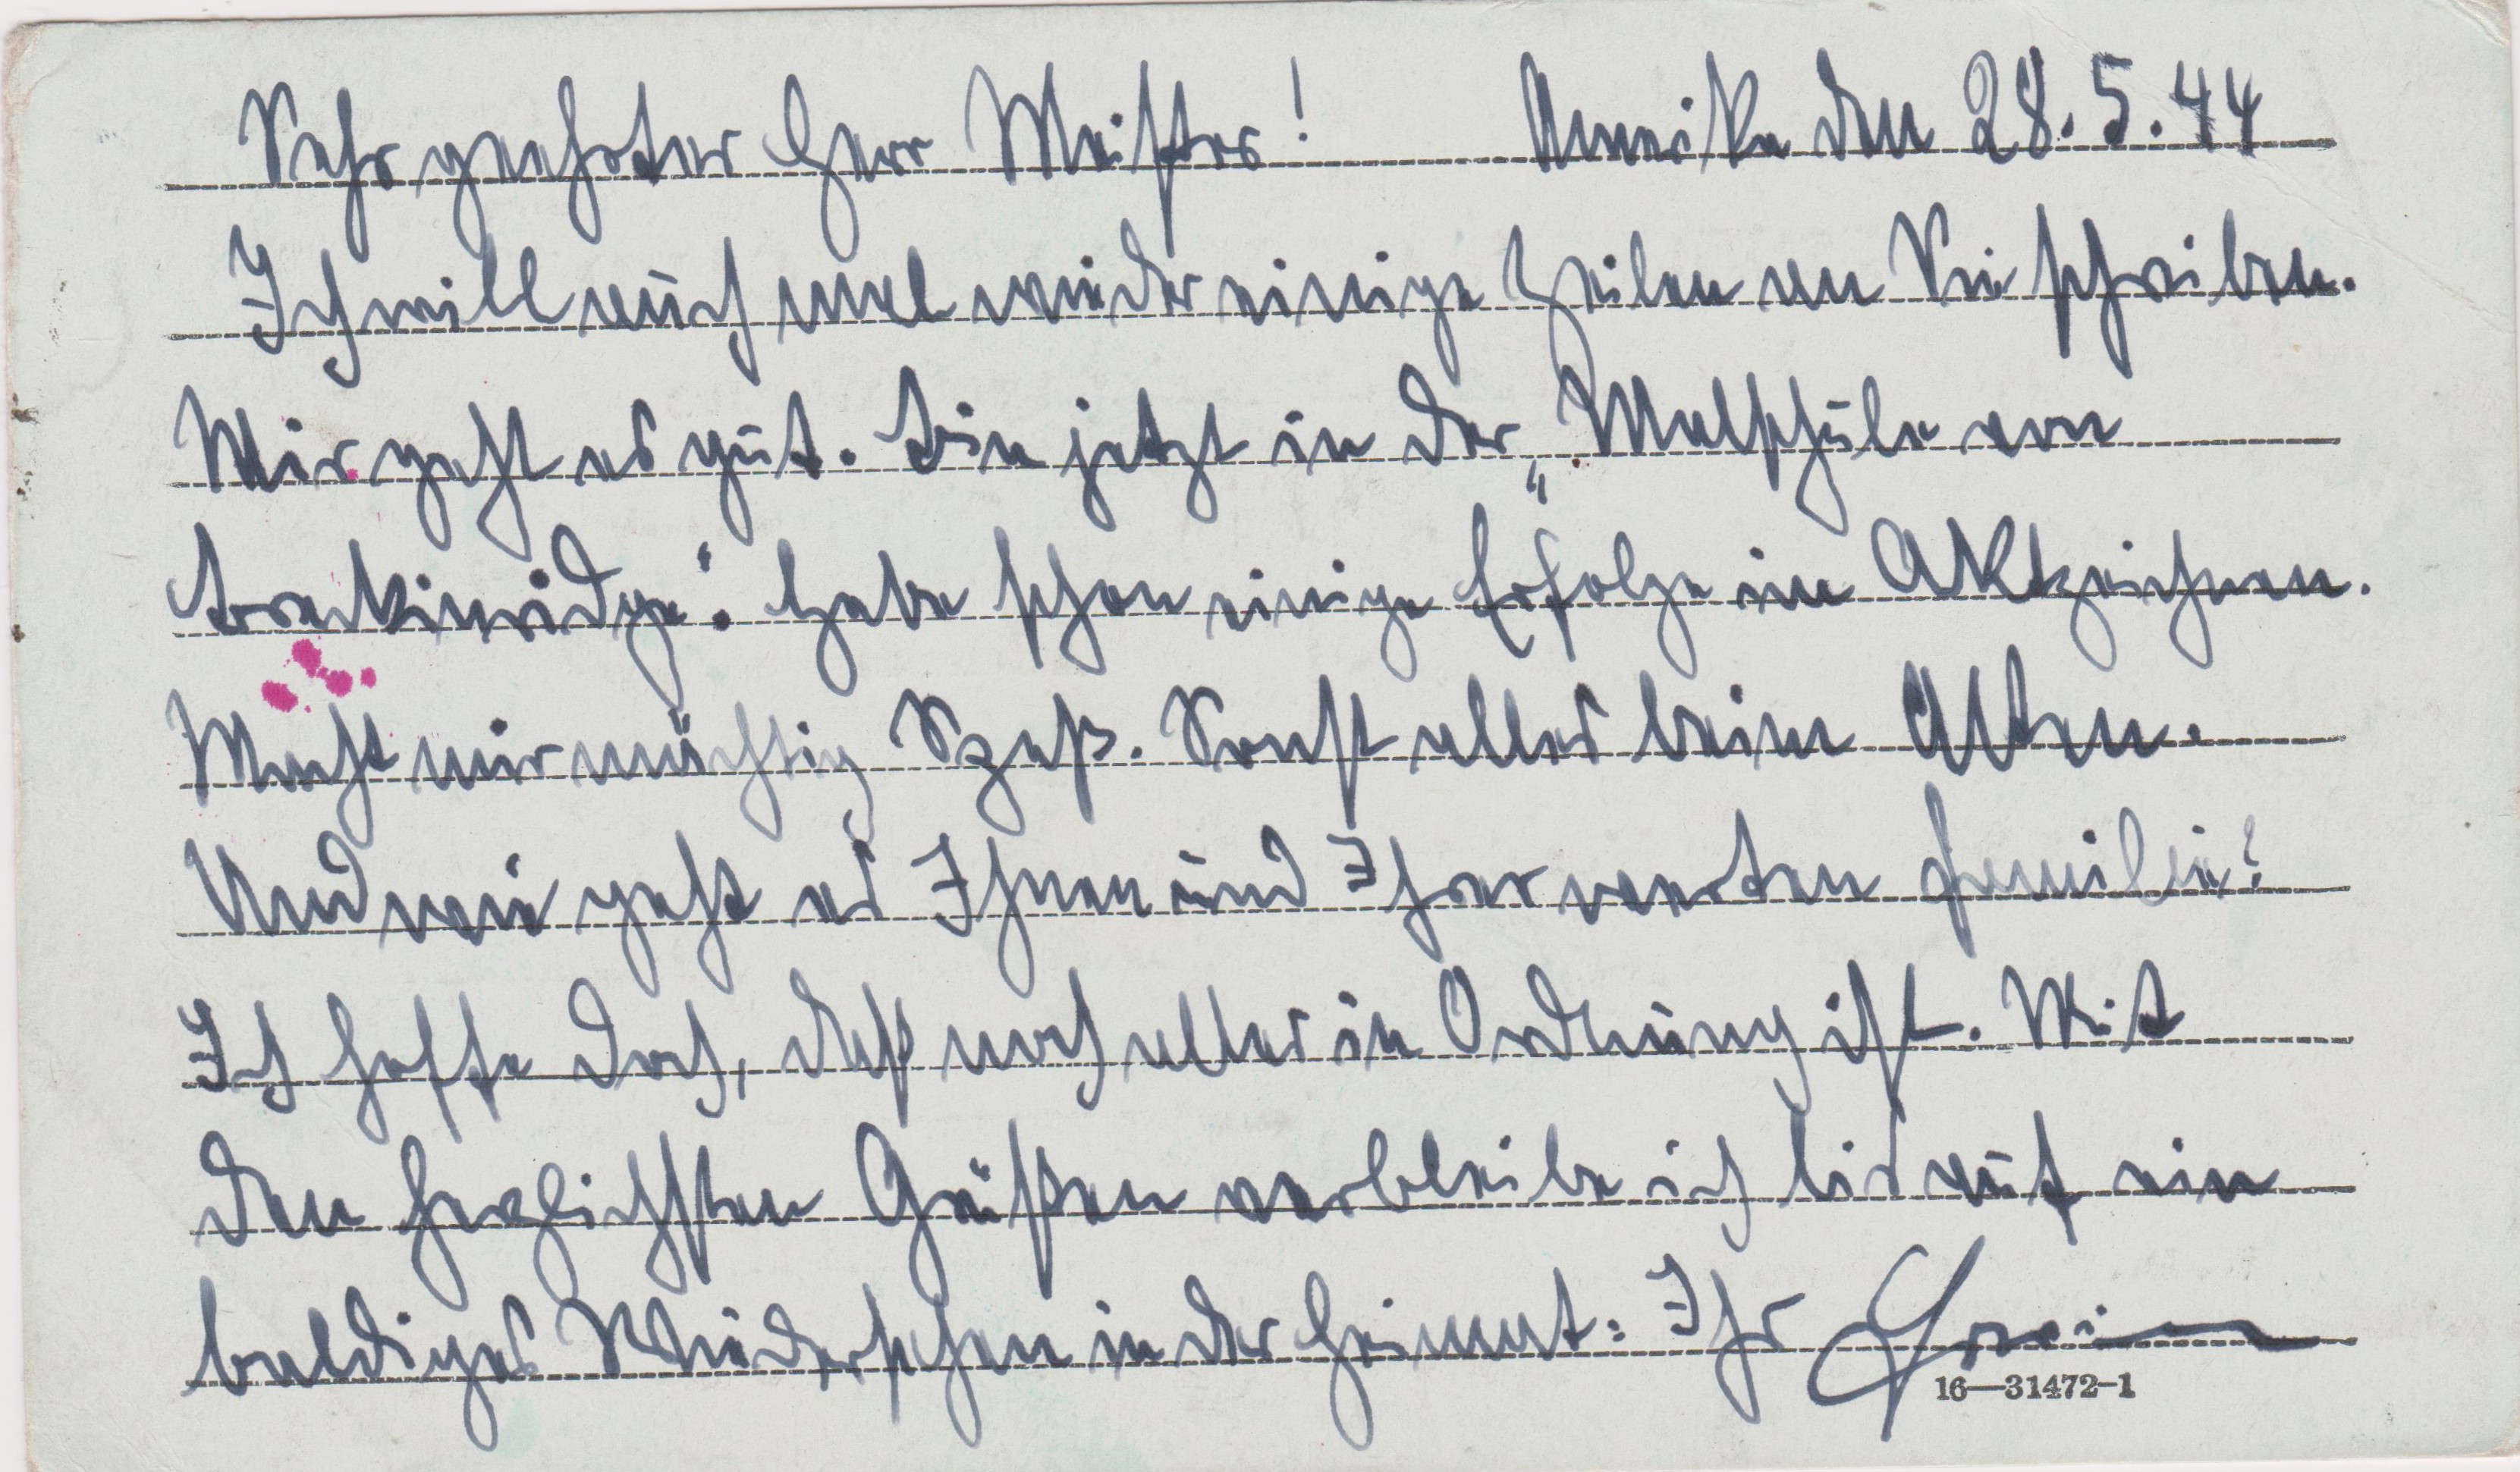 Sehr geehrter Herr Meister! Amerika den 28.5.44
Ich will auch mal wieder einige Zeilen an Sie schreiben.
Mir geht es gut. Bin jetzt in der „Malschule von
Breckinridge“. Habe schon einige Erfolge im Aktzeichnen.
Macht mir mächtig Spaß. Sonst alles beim Alten.
Und wie geht es Ihnen und Ihrer werten Familie?
Ich hoffe doch, daß noch alles in Ordnung ist. Mit
den herzlichsten Grüßen verbleibe ich bis auf ein
baldiges Wiedersehen in der Heimat: Ihr
16—31472-1